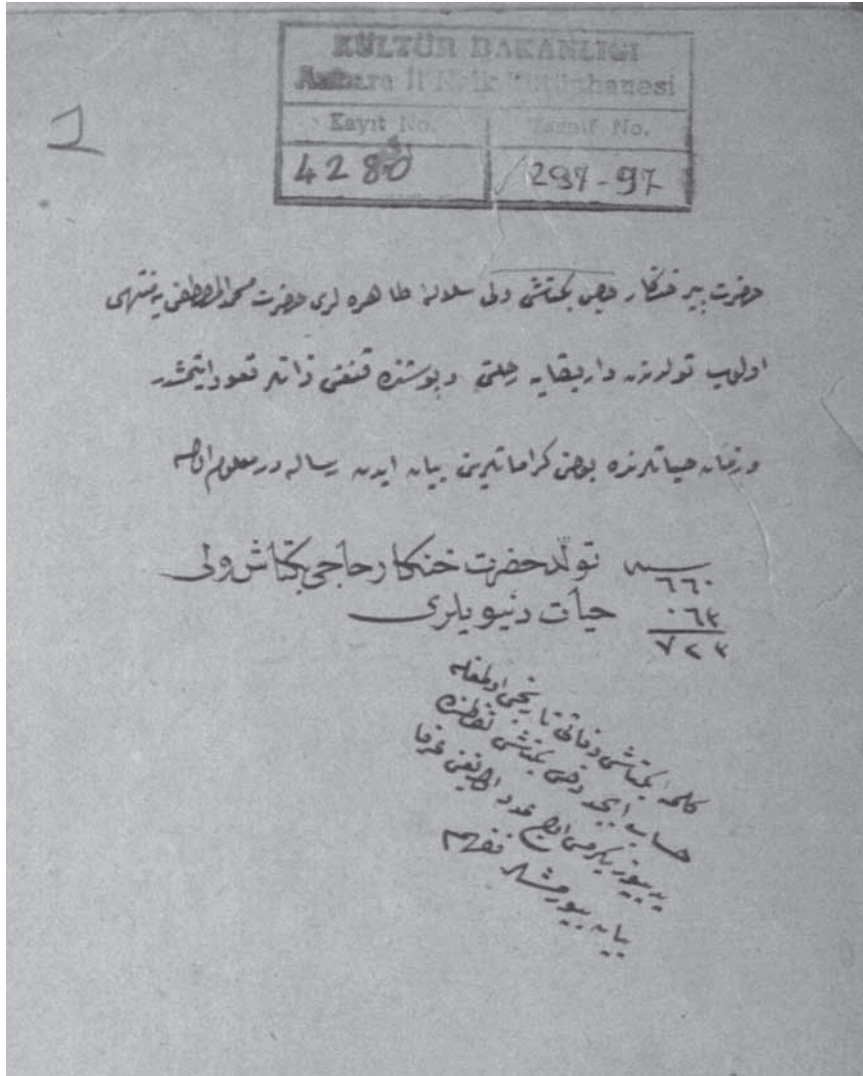 KÜLTÜR BAKANLIGI
Ankara İl Halk Kütüphanesi
Kayıt No. Tasnif No.
4280 297-97
حضرت پیر خنكار حاجی بكتاش ولی سلاله طاهره لری حضرت محمد المصطفی یه منتهی
اولوب تولدلرندن داربقایه رحلتی و پوستنده قنغی ذاتلر قعود ایتمشدر
و زمان حیاتلرنده بعض كراماتلرین بیان ایدن رساله در معلوم اوله
سنه ٦٦٠ تولد حضرت خنكار حاجی بكتاش ولی
٠٦٣ حیات دنیویلری
٧٢٣
كلمۀ بكتاشی وفاتی تاریخی اولمغله
حساب ابجد دخی بكتاشی لفظنده
یدییوز یكرمی اوچ عدد
بیان بیورمشلر